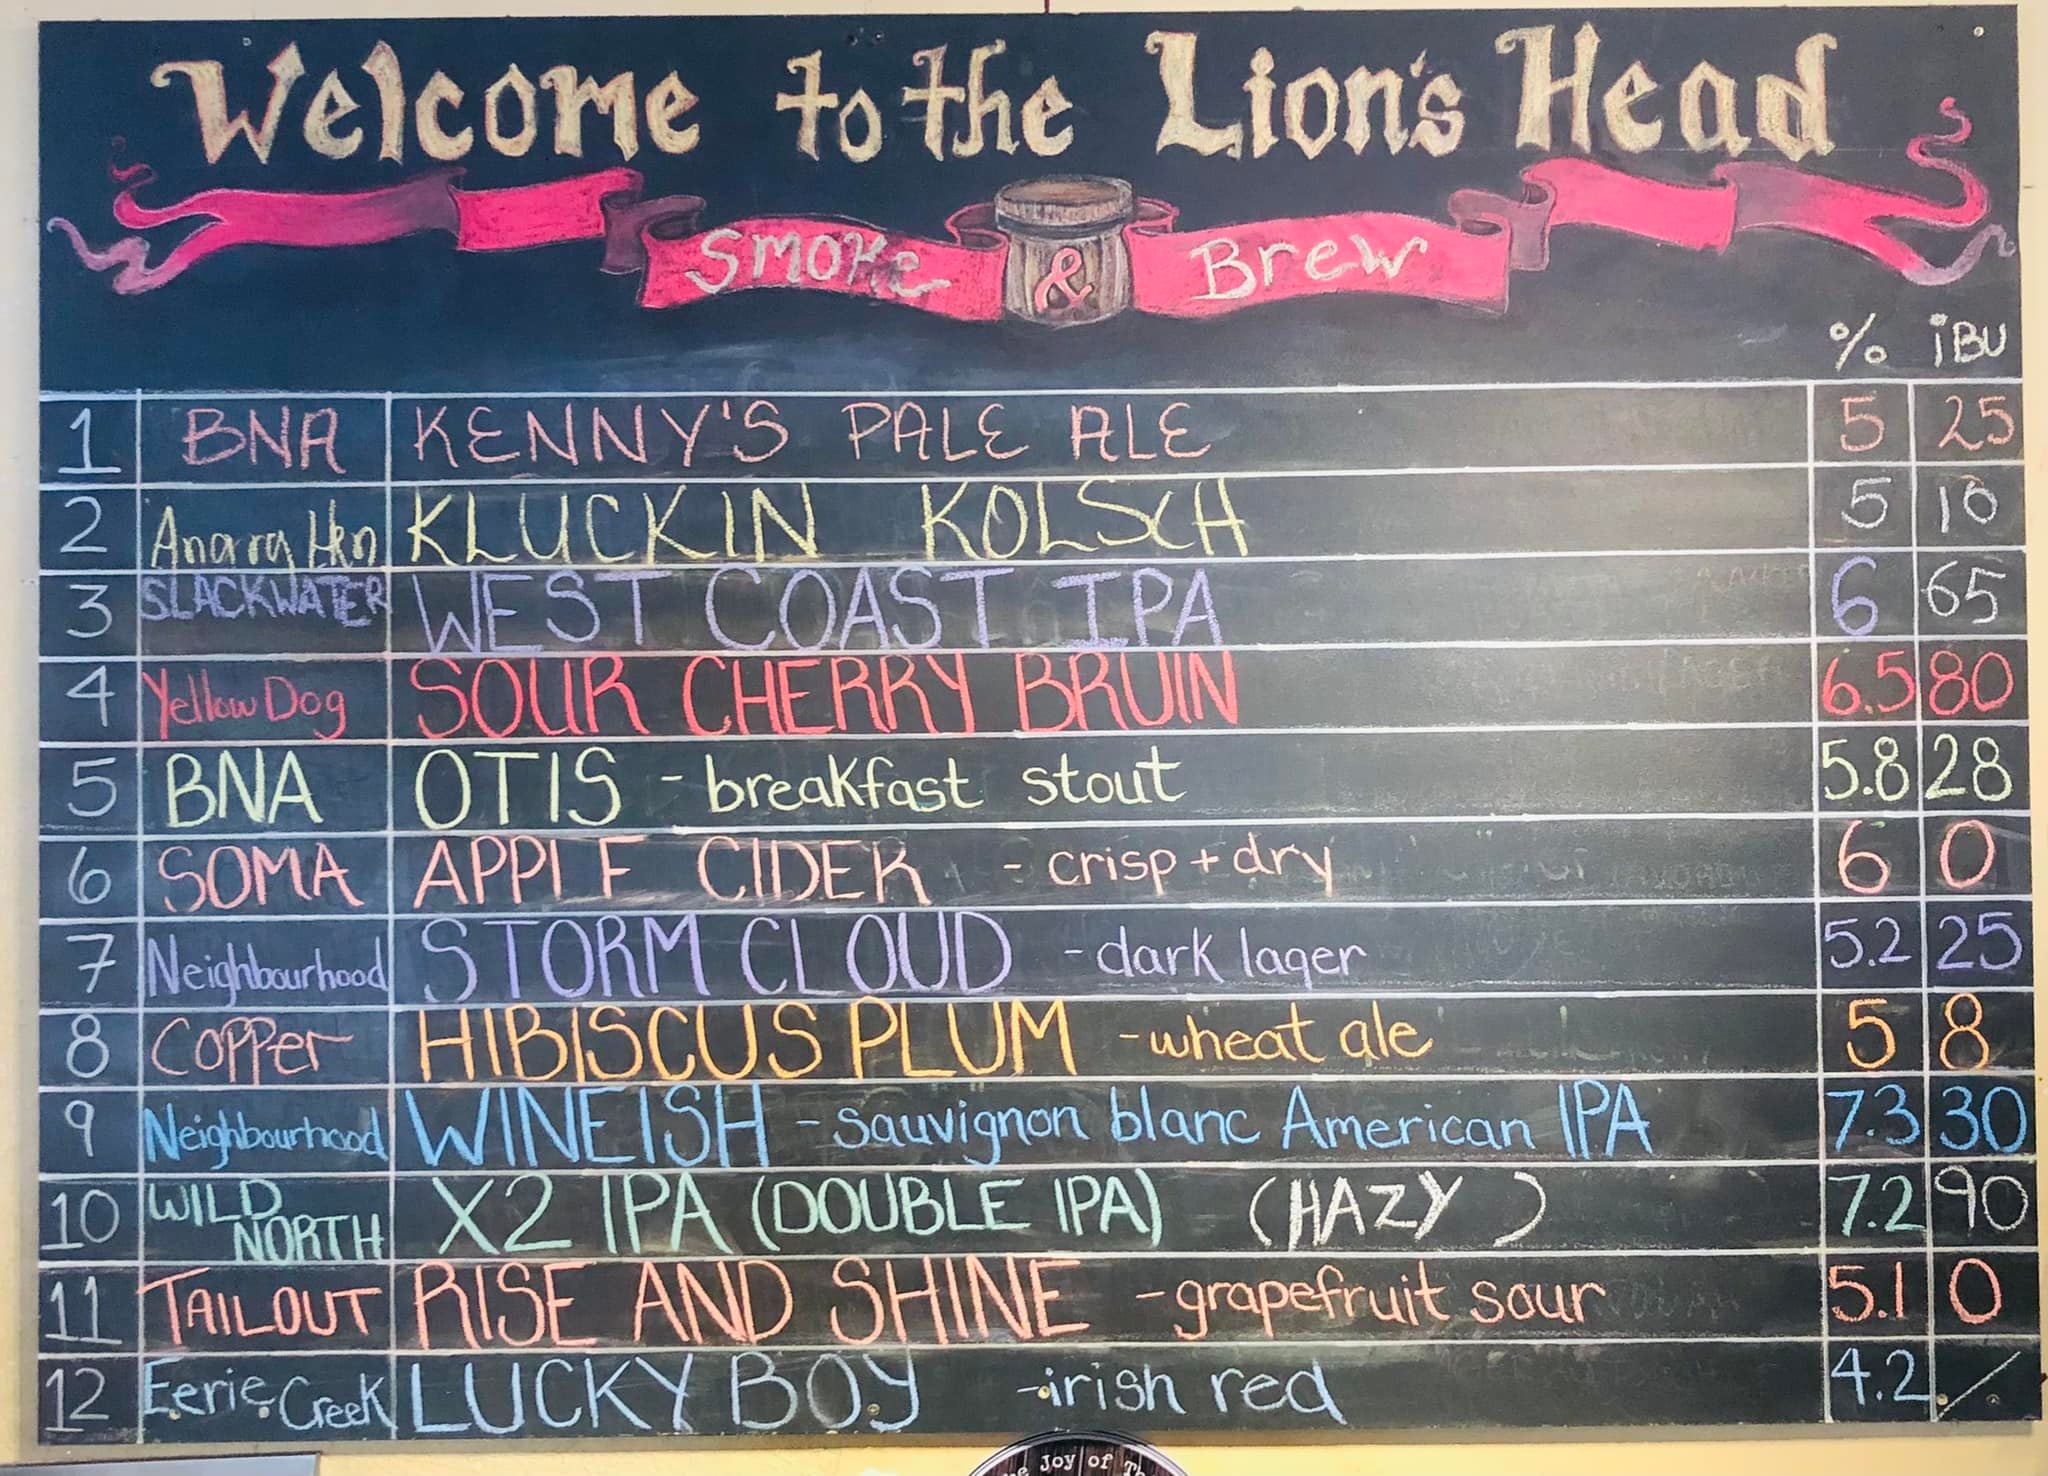 Welcome to the Lion's Head
Smoke & Brew
% iBU
1 BNA KENNY'S PALE ALE 5 25
2 Angry Hen KLUCKIN KOLSCH 5 10
3 SLACKWATER WEST COAST IPA 6 65
4 Yellow Dog SOUR CHERRY BRUIN 6.5 80
5 BNA OTIS - breakfast stout 5.8 28
6 SOMA APPLE CIDER - crisp + dry 6 0
7 Neighbourhood STORM CLOUD - dark lager 5.2 25
8 Copper HIBISCUS PLUM - wheat ale 5 8
9 Neighbourhood WINEISH - sauvignon blanc American IPA 7.3 30
10 WILD NORTH X2 IPA (DOUBLE IPA) (HAZY) 7.2 90
11 TAILOUT RISE AND SHINE - grapefruit sour 5.1 0
12 Eerie Creek LUCKY BOY - irish red 4.2 /
Joy of